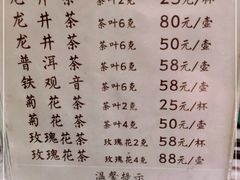 龙井茶 茶叶2克 25元/杯
龙井茶 茶叶6克 80元/壶
龙井茶 茶叶6克 50元/壶
普洱茶 茶叶6克 58元/壶
铁观音 茶叶6克 58元/壶
菊花茶 茶叶2克 25元/杯
菊花茶 茶叶4克 50元/壶
玫瑰花茶 玫瑰花2克 58元/壶
玫瑰花茶 玫瑰花4克 88元/壶
温馨提示